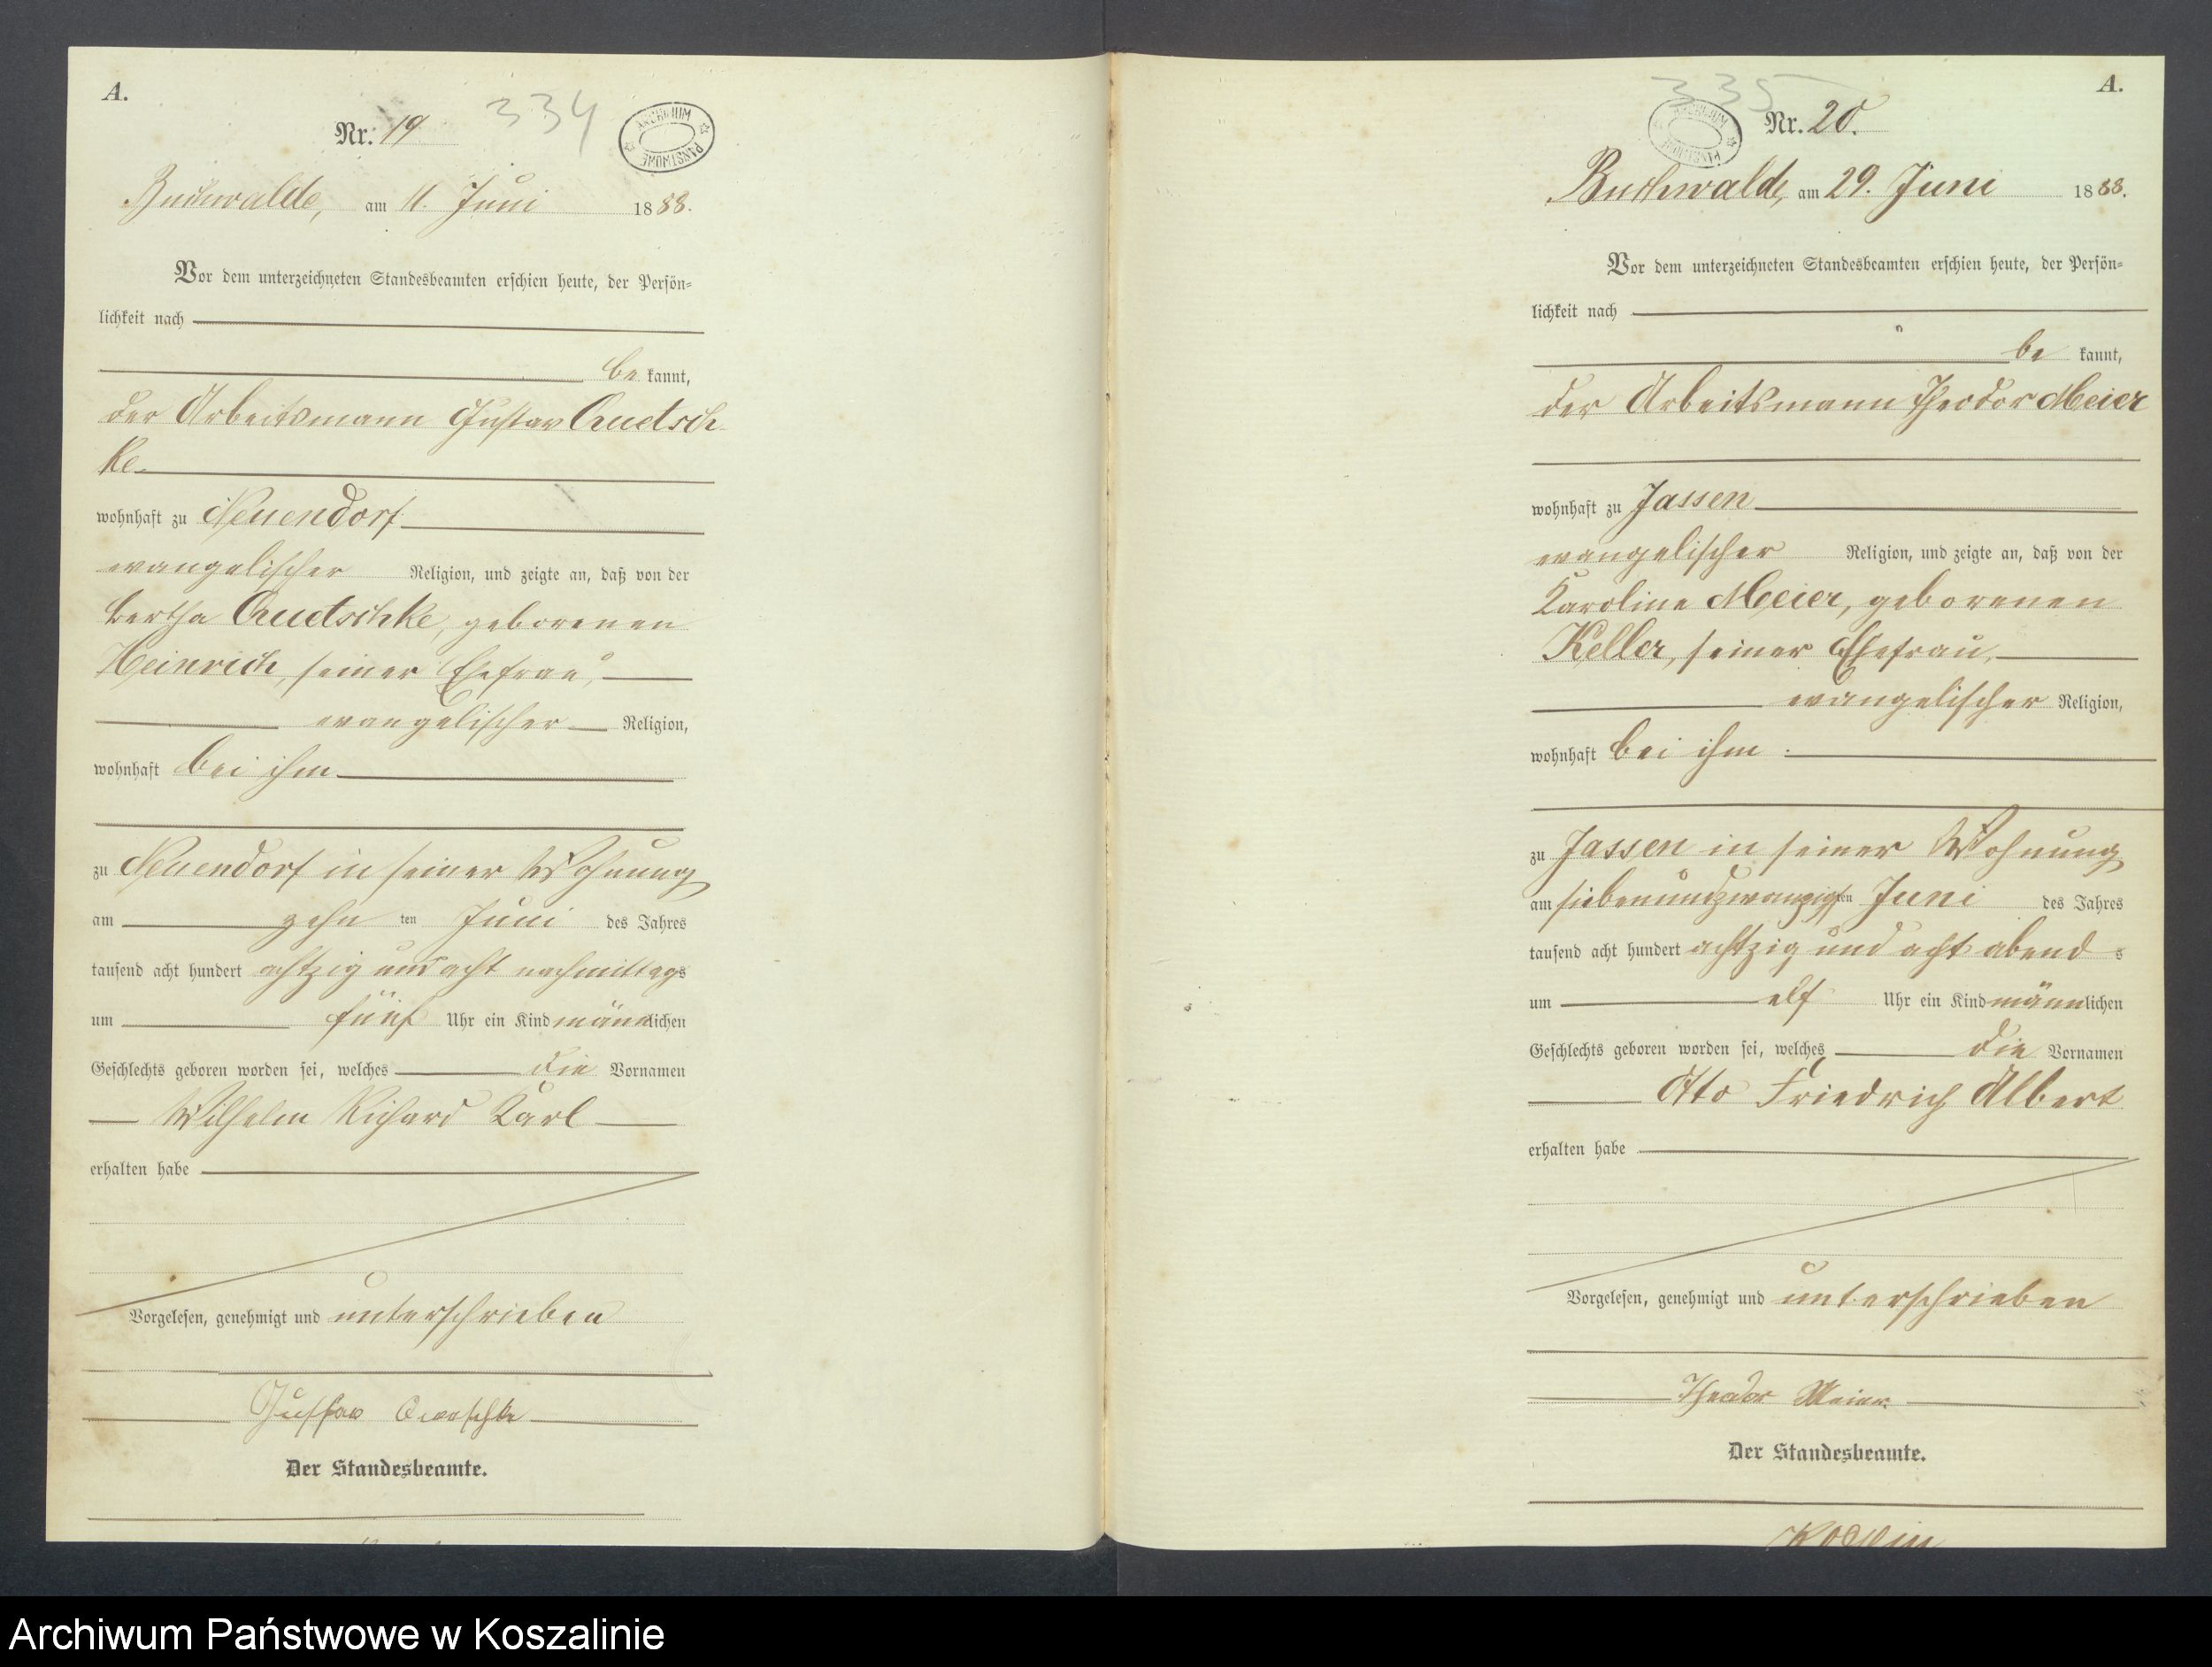 A.
Nr. 19
334
ARCHIWUM PAŃSTWOWE
Buchwalde, am 11. Juni 1888.
Vor dem unterzeichneten Standesbeamten erschien heute, der Persön-
lichkeit nach
be kannt,
der Arbeitsmann Gustav Quetsch-
ke
wohnhaft zu Neuendorf
evangelischer Religion, und zeigte an, daß von der
Bertha Quetschke, geborenen
Heinrich, seiner Ehefrau,
evangelischer Religion,
wohnhaft bei ihm
zu Neuendorf in seiner Wohnung
am zehn ten Juni des Jahres
tausend acht hundert achtzig und acht nachmittags
um fünf Uhr ein Kind männlichen
Geschlechts geboren worden sei, welches die Vornamen
Wilhelm Richard Karl
erhalten habe
Vorgelesen, genehmigt und unterschrieben
Gustav
Der Standesbeamte.
A.
335
ARCHIWUM PAŃSTWOWE
Nr. 20.
Buchwalde, am 29. Juni 1888.
Vor dem unterzeichneten Standesbeamten erschien heute, der Persön-
lichkeit nach
be kannt,
der Arbeitsmann Theodor Meier
wohnhaft zu Jassen
evangelischer Religion, und zeigte an, daß von der
Karoline Meier, geborenen
Keller, seiner Ehefrau,
evangelischer Religion,
wohnhaft bei ihm
zu Jassen in seiner Wohnung
am siebenundzwanzigsten Juni des Jahres
tausend acht hundert achtzig und acht abend s
um elf Uhr ein Kind männlichen
Geschlechts geboren worden sei, welches die Vornamen
Otto Friedrich Albert
erhalten habe
Vorgelesen, genehmigt und unterschrieben
Theodor Meier.
Der Standesbeamte.
Archiwum Państwowe w Koszalinie